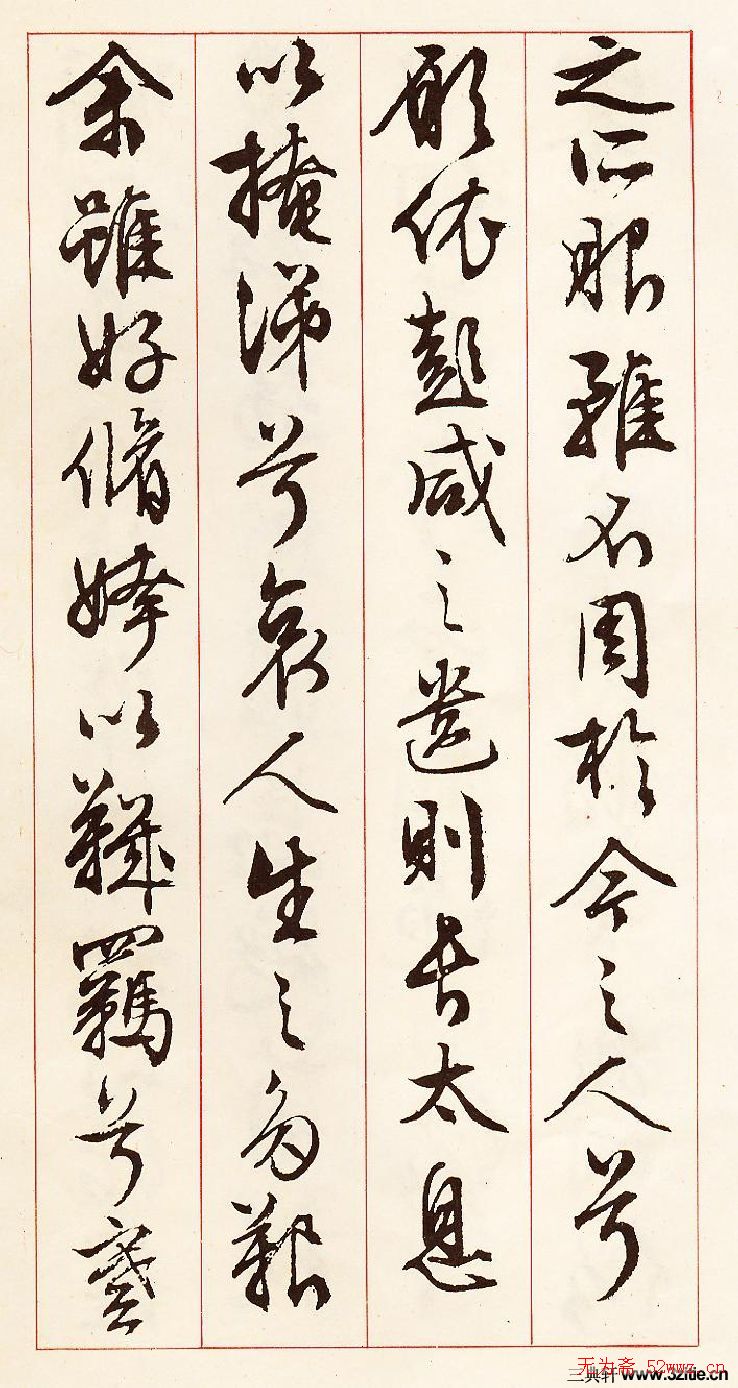 之所服雖不周於今之人兮
願依彭咸之遺則長太息
以掩涕兮哀人生之多艱
余雖好脩姱以鞿羈兮謇
无为斋 52wwz.cn
三典轩 www.3zitie.cn